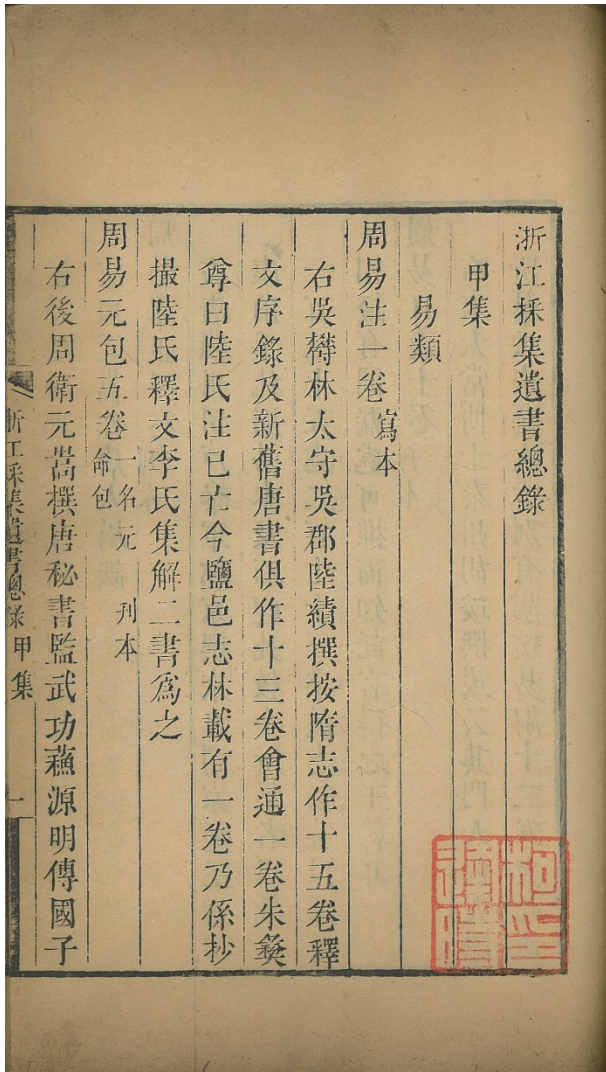 浙江採集遺書總錄
甲集
易類
周易注一卷 寫本
右吳欎林太守吳郡陸績撰按隋志作十五卷釋
文序錄及新舊唐書俱作十三卷會通一卷朱彜
尊曰陸氏注已亡今鹽邑志林載有一卷乃係抄
撮陸氏釋文李氏集解二書爲之
周易元包五卷 一名元命包 刊本
右後周衛元嵩撰唐秘書監武功蘓源明傳國子
浙江採集遺書總錄 甲集 一